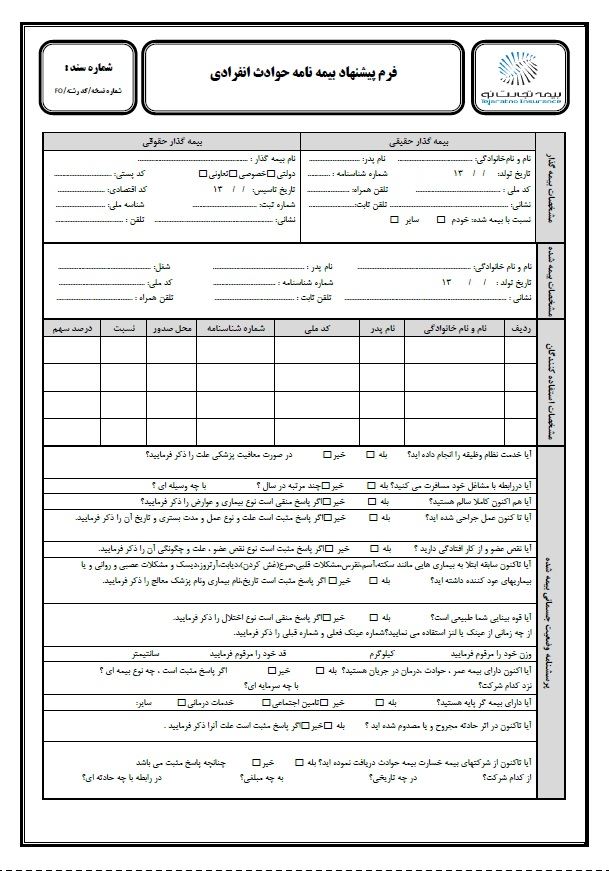 بیمه تجارت نو
Tejaratno Insurance
فرم پیشنهاد بیمه نامه حوادث انفرادی
شماره سند :
شماره نسخه/کد رشته/FO
مشخصات بیمه گذار
بیمه گذار حقیقی
نام و نام‌خانوادگی: .......... نام پدر: ..........
تاریخ تولد: / / ۱۳ شماره شناسنامه : ..........
کد ملی : .......... تلفن همراه: ..........
نشانی: .......... تلفن ثابت: ..........
نسبت با بیمه شده: خودم □ سایر □
بیمه گذار حقوقی
نام بیمه گذار : ..........
دولتی□خصوصی□تعاونی□ کد پستی: ..........
تاریخ تاسیس: / / ۱۳ کد اقتصادی: ..........
شماره ثبت: .......... شناسه ملی: ..........
نشانی: .......... تلفن : ..........
مشخصات بیمه شده
نام و نام خانوادگی: .......... نام پدر : .......... شغل: ..........
تاریخ تولد : / / ۱۳ شماره شناسنامه : .......... کد ملی: ..........
نشانی : .......... تلفن ثابت : .......... تلفن همراه : ..........
مشخصات استفاده کنندگان
ردیف نام و نام خانوادگی نام پدر کد ملی شماره شناسنامه محل صدور نسبت درصد سهم
پرسشنامه وضعیت جسمانی بیمه شده
آیا خدمت نظام وظیفه را انجام داده اید؟ بله □ خیر □ در صورت معافیت پزشکی علت را ذکر فرمایید؟
آیا دررابطه با مشاغل خود مسافرت می کنید؟ بله □ خیر□چند مرتبه در سال ؟ با چه وسیله ای ؟
آیا هم اکنون کاملا سالم هستید؟ بله □ خیر□اگر پاسخ منفی است نوع بیماری و عوارض را ذکر فرمایید؟
آیا تا کنون عمل جراحی شده اید؟ بله □ خیر□اگر پاسخ مثبت است علت و نوع عمل و مدت بستری و تاریخ آن را ذکر فرمایید.
آیا نقص عضو و از کار افتادگی دارید ؟ بله □ خیر □اگر پاسخ مثبت است نوع نقص عضو ، علت و چگونگی آن را ذکر فرمایید.
آیا تاکنون سابقه ابتلا به بیماری هایی مانند سکته،آسم،نقرس،مشکلات قلبی،صرع(غش کردن)،دیابت،آرتروز،دیسک و مشکلات عصبی و روانی و یا
بیماریهای عود کننده داشته اید؟ بله □ خیر □ اگر پاسخ مثبت است تاریخ،نام بیماری ونام پزشک معالج را ذکر فرمایید.
آیا قوه بینایی شما طبیعی است؟ بله □ خیر□اگر پاسخ منفی است نوع اختلال را ذکر فرمایید.
از چه زمانی از عینک یا لنز استفاده می نمایید؟شماره عینک فعلی و شماره قبلی را ذکر فرمایید.
وزن خود را مرقوم فرمایید کیلوگرم قد خود را مرقوم فرمایید سانتیمتر
آیا اکنون دارای بیمه عمر ، حوادث ،درمان در جریان هستید؟ بله □ خیر□ اگر پاسخ مثبت است ، چه نوع بیمه ای ؟
نزد کدام شرکت؟ با چه سرمایه ای؟
آیا دارای بیمه گر پایه هستید؟ بله □ خیر □تامین اجتماعی□ خدمات درمانی□ سایر:
آیا تاکنون در اثر حادثه مجروح و یا مصدوم شده اید ؟ بله □خیر□اگر پاسخ مثبت است علت آنرا ذکر فرمایید .
آیا تاکنون از شرکتهای بیمه خسارت بیمه حوادث دریافت نموده اید؟ بله □ خیر□ چنانچه پاسخ مثبت می باشد
از کدام شرکت؟ در چه تاریخی؟ به چه مبلغی؟ در رابطه با چه حادثه ای؟